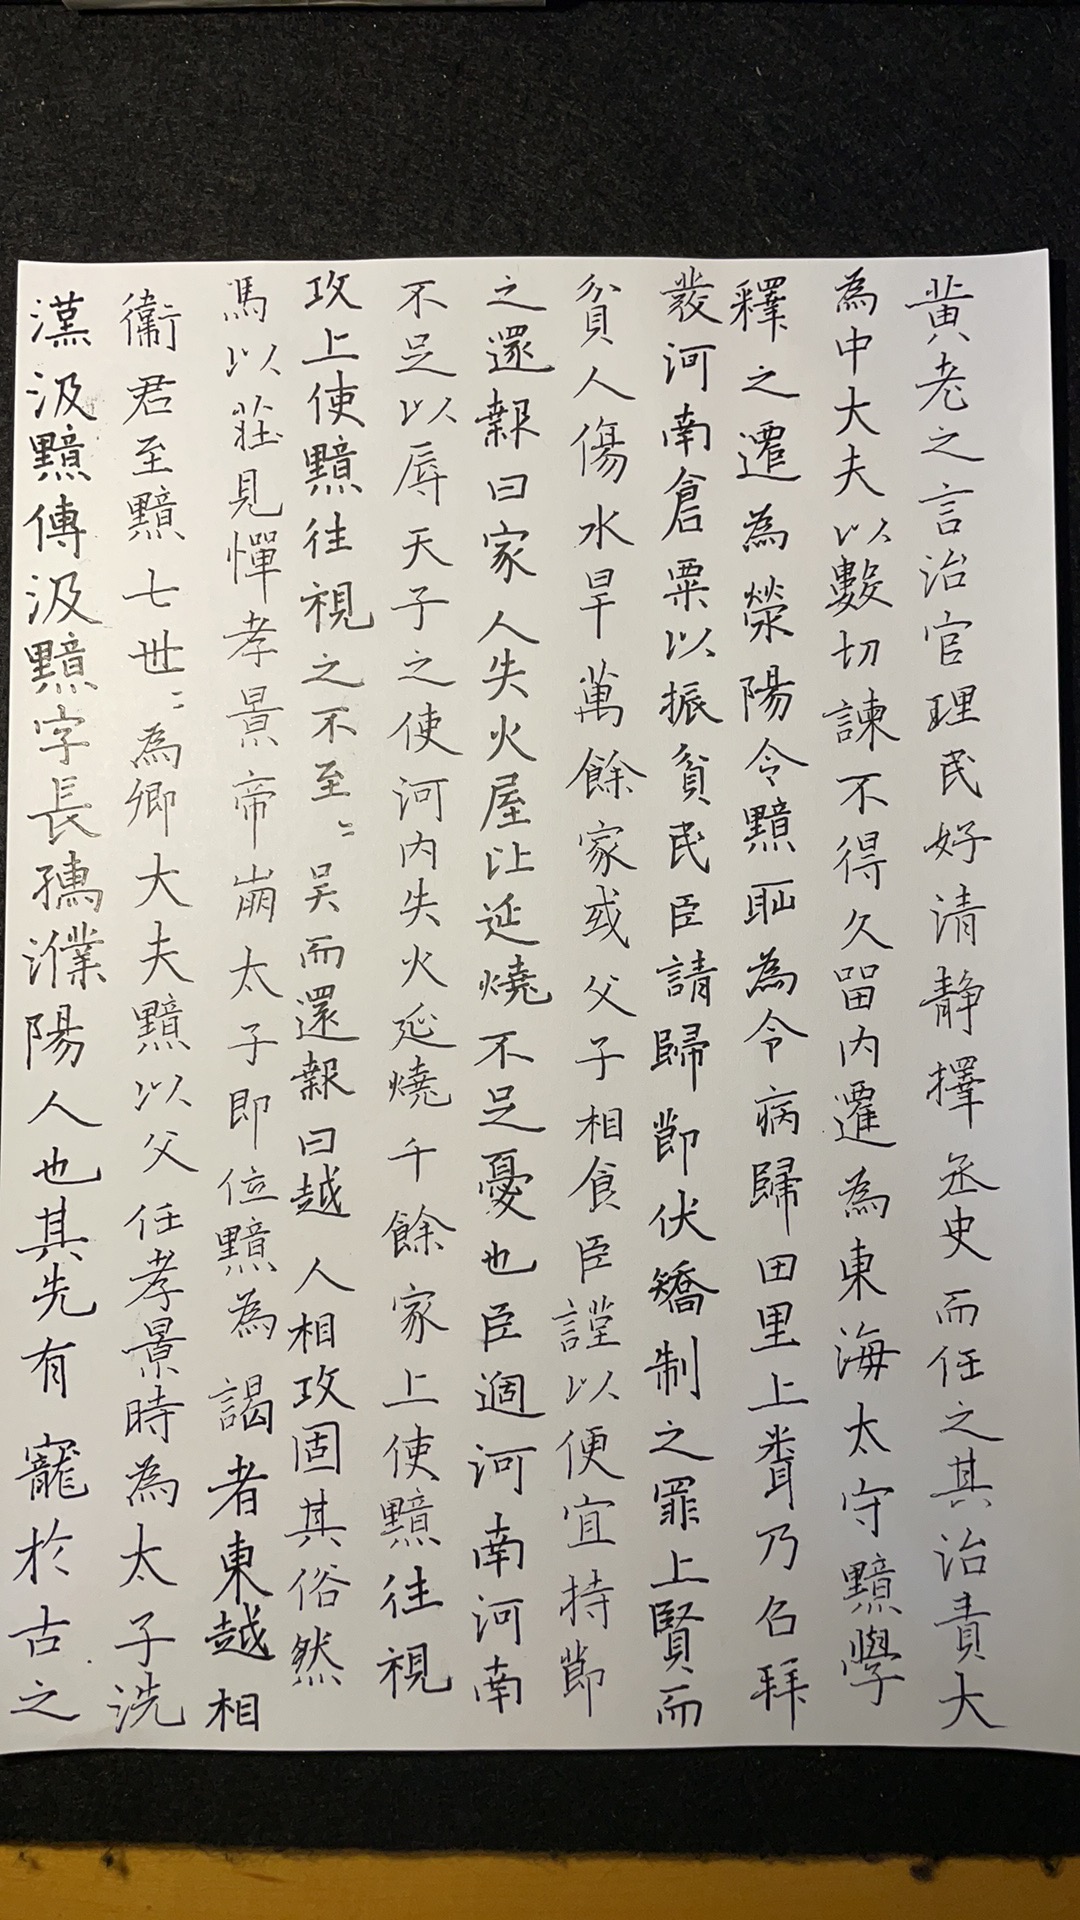 漢汲黯傳汲黯字長孺濮陽人也其先有寵於古之
衛君至黯七世〻為卿大夫黯以父任孝景時為太子洗
馬以莊見憚孝景帝崩太子即位黯為謁者東越相
攻上使黯往視之不至〻吳而還報曰越人相攻固其俗然
不足以辱天子之使河内失火延燒千餘家上使黯往視
之還報曰家人失火屋比延燒不足憂也臣過河南河南
貧人傷水旱萬餘家或父子相食臣謹以便宜持節
發河南倉粟以振貧民臣請歸節伏矯制之罪上賢而
釋之遷為滎陽令黯耻為令病歸田里上聞乃召拜
為中大夫以數切諫不得久留内遷為東海太守黯學
黃老之言治官理民好清静擇丞史而任之其治責大